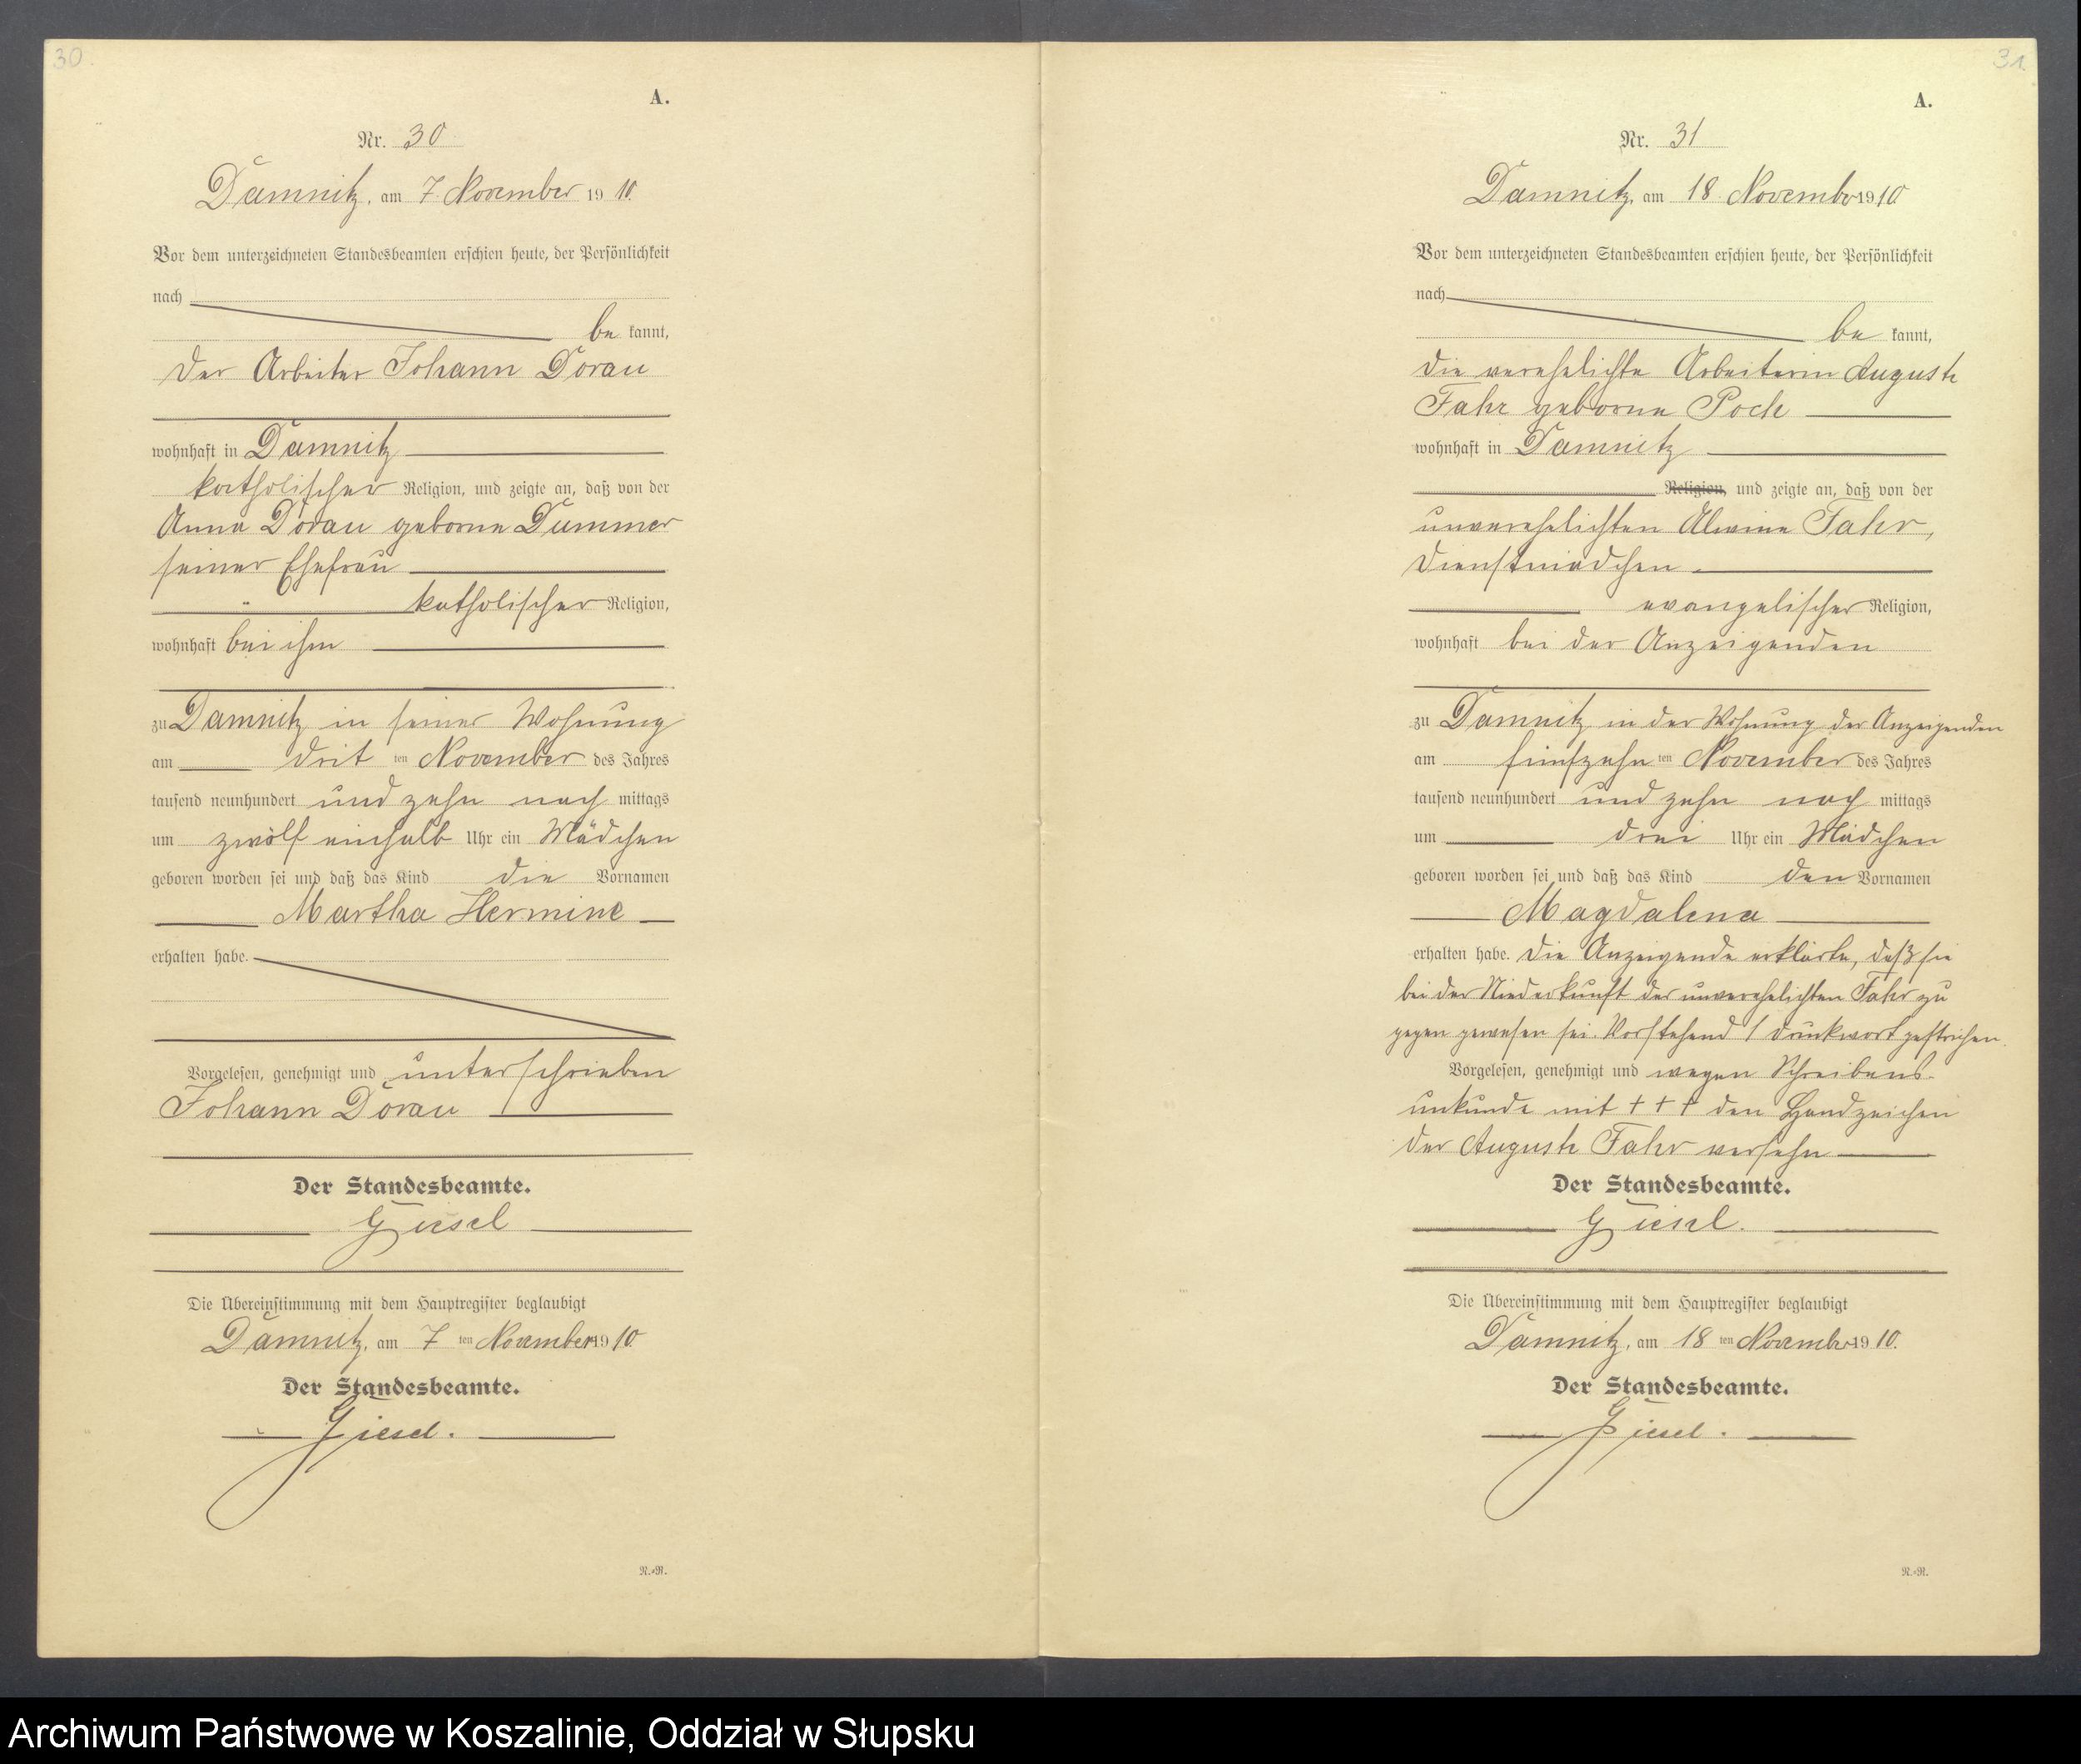 30
A.
Nr. 30
Damnitz, am 7. November 1910.
Vor dem unterzeichneten Standesbeamten erschien heute, der Persönlichkeit
nach
be kannt,
der Arbeiter Johann Dorau
wohnhaft in Damnitz
katholischer Religion, und zeigte an, daß von der
Anna Dorau geborne Dummer
seiner Ehefrau
katholischer Religion,
wohnhaft bei ihm
zu Damnitz in seiner Wohnung
am dritten November des Jahres
tausend neunhundert und zehn nach mittags
um zwölf einhalb Uhr ein Mädchen
geboren worden sei und daß das Kind die Vornamen
Martha Hermine
erhalten habe.
Vorgelesen, genehmigt und unterschrieben
Johann Dorau
Der Standesbeamte.
Giesel
Die Übereinstimmung mit dem Hauptregister beglaubigt
Damnitz, am 7 ten November 1910.
Der Standesbeamte.
Giesel.
R.-R.
31.
A.
Nr. 31
Damnitz, am 18. November 1910
Vor dem unterzeichneten Standesbeamten erschien heute, der Persönlichkeit
nach
be kannt,
die verehelichte Arbeiterin Auguste
Fahr geborne Pock
wohnhaft in Damnitz
Religion, und zeigte an, daß von der
unverehelichten Alwine Fahr,
Dienstmädchen
evangelischer Religion,
wohnhaft bei der Anzeigenden
zu Damnitz in der Wohnung der Anzeigenden
am fünfzehnten November des Jahres
tausend neunhundert und zehn nach mittags
um drei Uhr ein Mädchen
geboren worden sei und daß das Kind den Vornamen
Magdalena
erhalten habe. Die Anzeigende erklärte, daß sie
bei der Niederkunft der unverehelichten Fahr zu
gegen gewesen sei. Vorstehend 1 Druckwort gestrichen.
Vorgelesen, genehmigt und wegen Schreibens-
unkunde mit + + + den Handzeichen
der Auguste Fahr versehn
Der Standesbeamte.
Giesel.
Die Übereinstimmung mit dem Hauptregister beglaubigt
Damnitz, am 18 ten November 1910.
Der Standesbeamte.
Giesel.
R.-R.
Archiwum Państwowe w Koszalinie, Oddział w Słupsku